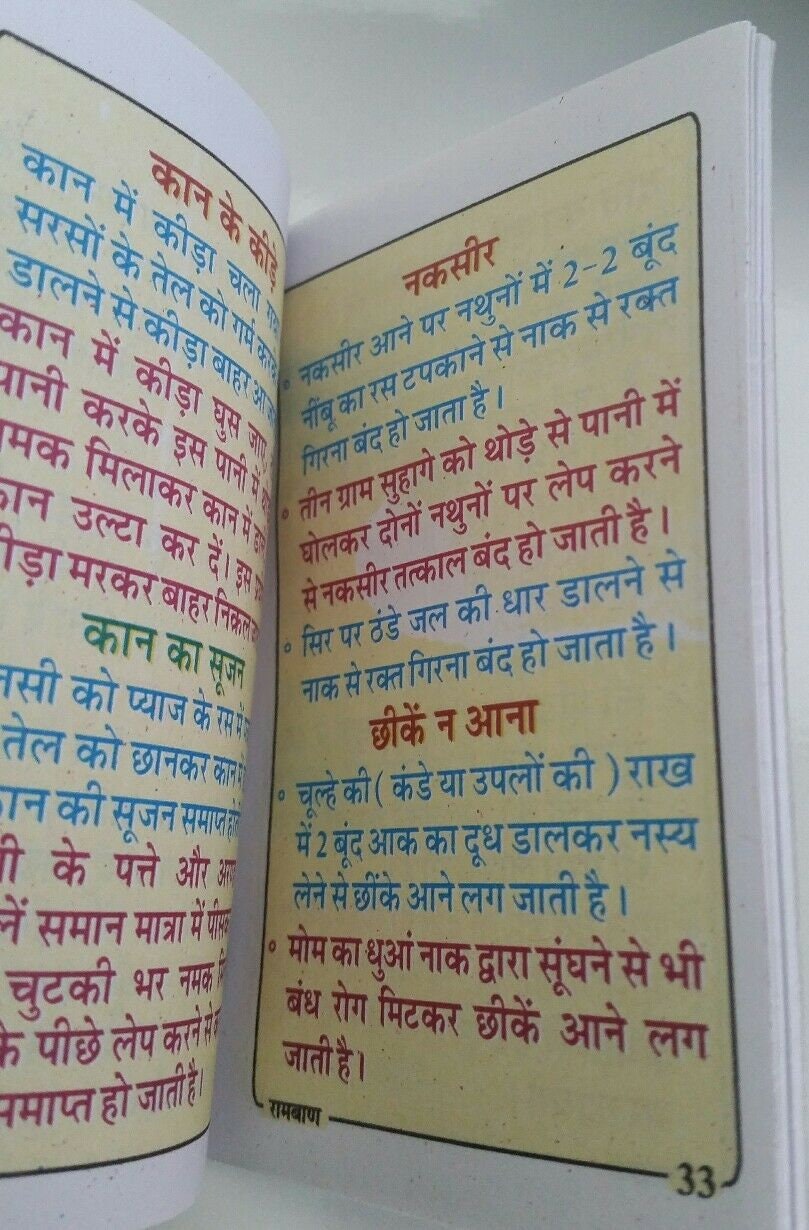 कान के कीड़े
कान में कीड़ा चला
सरसों के तेल को गर्म करके
डालने से कीड़ा बाहर आ
कान में कीड़ा घुस जाए
पानी करके इस पानी में
मिलाकर कान में
उल्टा कर दें। इस
मरकर बाहर निकल
कान का सूजन
को प्याज के रस में
तेल को छानकर कान
की सूजन समाप्त
के पत्ते और
समान मात्रा में
चुटकी भर नमक
के पीछे लेप करने से
समाप्त हो जाती है।
नकसीर
• नकसीर आने पर नथुनों में 2-2 बूंद
नींबू का रस टपकाने से नाक से रक्त
गिरना बंद हो जाता है।
• तीन ग्राम सुहागे को थोड़े से पानी में
घोलकर दोनों नथुनों पर लेप करने
से नकसीर तत्काल बंद हो जाती है।
• सिर पर ठंडे जल की धार डालने से
नाक से रक्त गिरना बंद हो जाता है।
छीकें न आना
• चूल्हे की ( कंडे या उपलों की ) राख
में 2 बूंद आक का दूध डालकर नस्य
लेने से छींके आने लग जाती है।
• मोम का धुआं नाक द्वारा सूंघने से भी
बंध रोग मिटकर छीकें आने लग
जाती है।
रामबाण
33